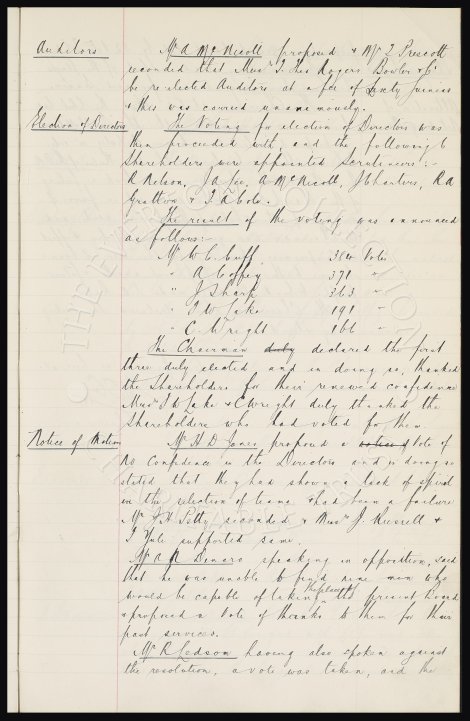 Auditors Mr A McNicoll proposed & Mr Z Prescott
seconded that Messrs T. Theo Rogers Bowler & Co
be re-elected Auditors at a fee of Sixty Guineas
& this was carried unanimously.
Election of Directors The Voting for election of Directors was
then proceeded with, and the following 6
Shareholders were appointed Scrutineers:-
R Nelson, J A Lee, A McNicoll, R A
Gratton &
The result of the voting was announced
as follows:-
Mr W. C. Cuff. 384 Votes
" A Coffey 371 "
" J Sharp 363 "
" T W Lake 191 "
" C. Wright 166 "
The Chairman duly declared the first
three duly elected and in doing so, thanked
the Shareholders for their renewed confidence
Messrs T W Lake & C Wright duly thanked the
Shareholders who had voted for them.
Notice of Motion Mr H D Jones proposed a notice of Vote of
No Confidence in the Directors and in doing so
stated that they had shown a lack of spirit
in the selection of teams & had been a failure
Mr J. H Petty seconded & Messrs J. Russell &
J Yule supported same.
Mr A R Denaro speaking in opposition, said
that he was unable to find nine men who
would be capable of taking the place of the present Board
& proposed a Vote of thanks to them for their
past services.
Mr R Ledsom having also spoken against
the resolution, a vote was taken, and the
THE EVERTON COLLECTION